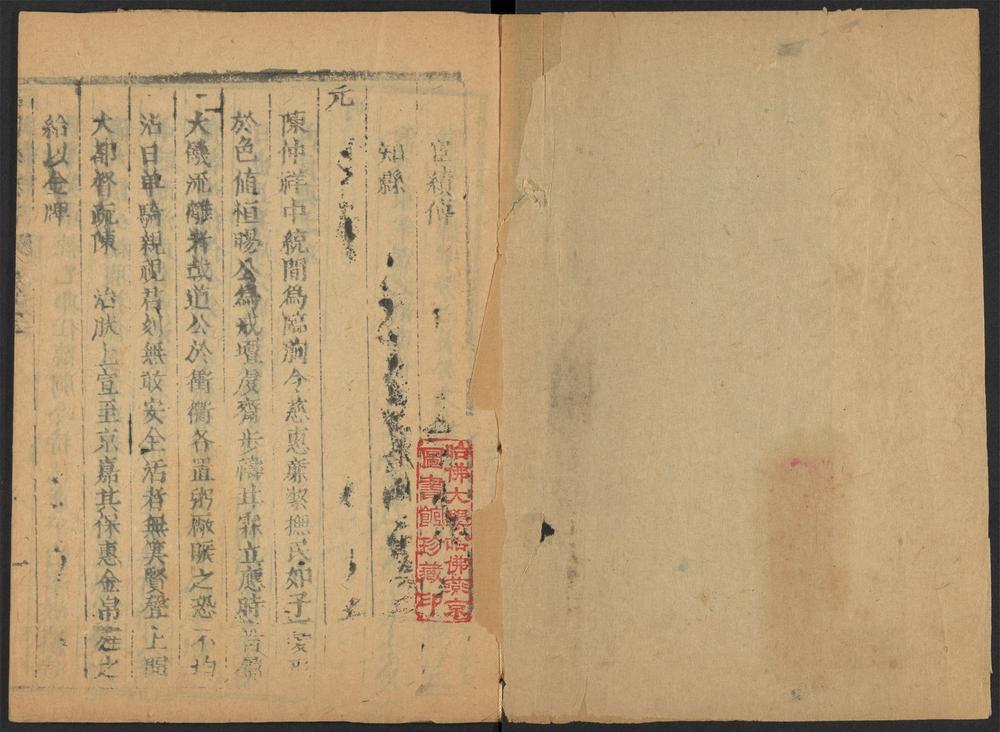 宦績傳
知縣
元
陳仲祥中統間為臨朐令慈惠廉潔撫民如子
於色值恒暘公為戒壇處齋步禱甘霖立應時
大饑流離者載道公於衝衢各置粥廠賑之恐不均
沾日單騎親視君刻無敢安全活者無算賢聲上
大都督疏陳 治狀上宣至京嘉其保惠金帛 之
給以金牌
哈佛大學哈佛燕京
圖書館珍藏印